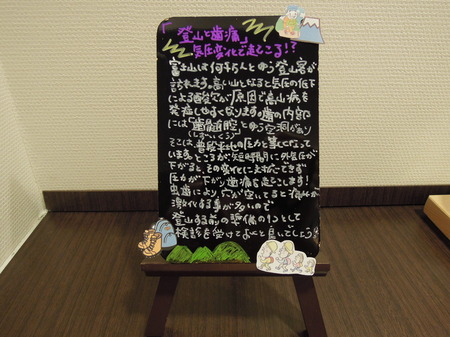 「登山と歯痛」
気圧変化で起こる!?
富士山は何千万人という登山客が
訪れます。高い山となると気圧の低下
による酸欠が原因で高山病を
発症しやすくなりますの歯の内部
には「歯髄腔」という空洞があり
(しずいくう)
そこは、普段、本地の圧力と事になって
います。ところが、短時間に外気圧が
下がると、その変化に対応できず
圧力が下がり歯痛を起こします!
虫歯により穴が空いてると痛みが
激化する事が多いので
登山する前の準備の1つとして
検診を受けておくと良いでしょう